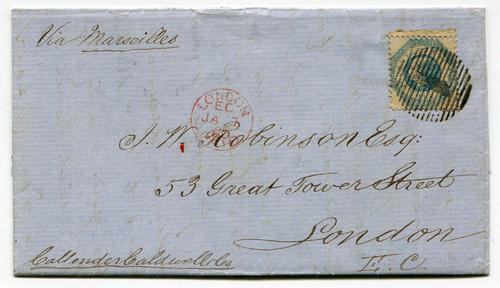 Via Marseilles
LONDON
EC
JA
J. W. Robinson Esq:
53 Great Tower Street
London
E. C.
Callender Caldwell & Co